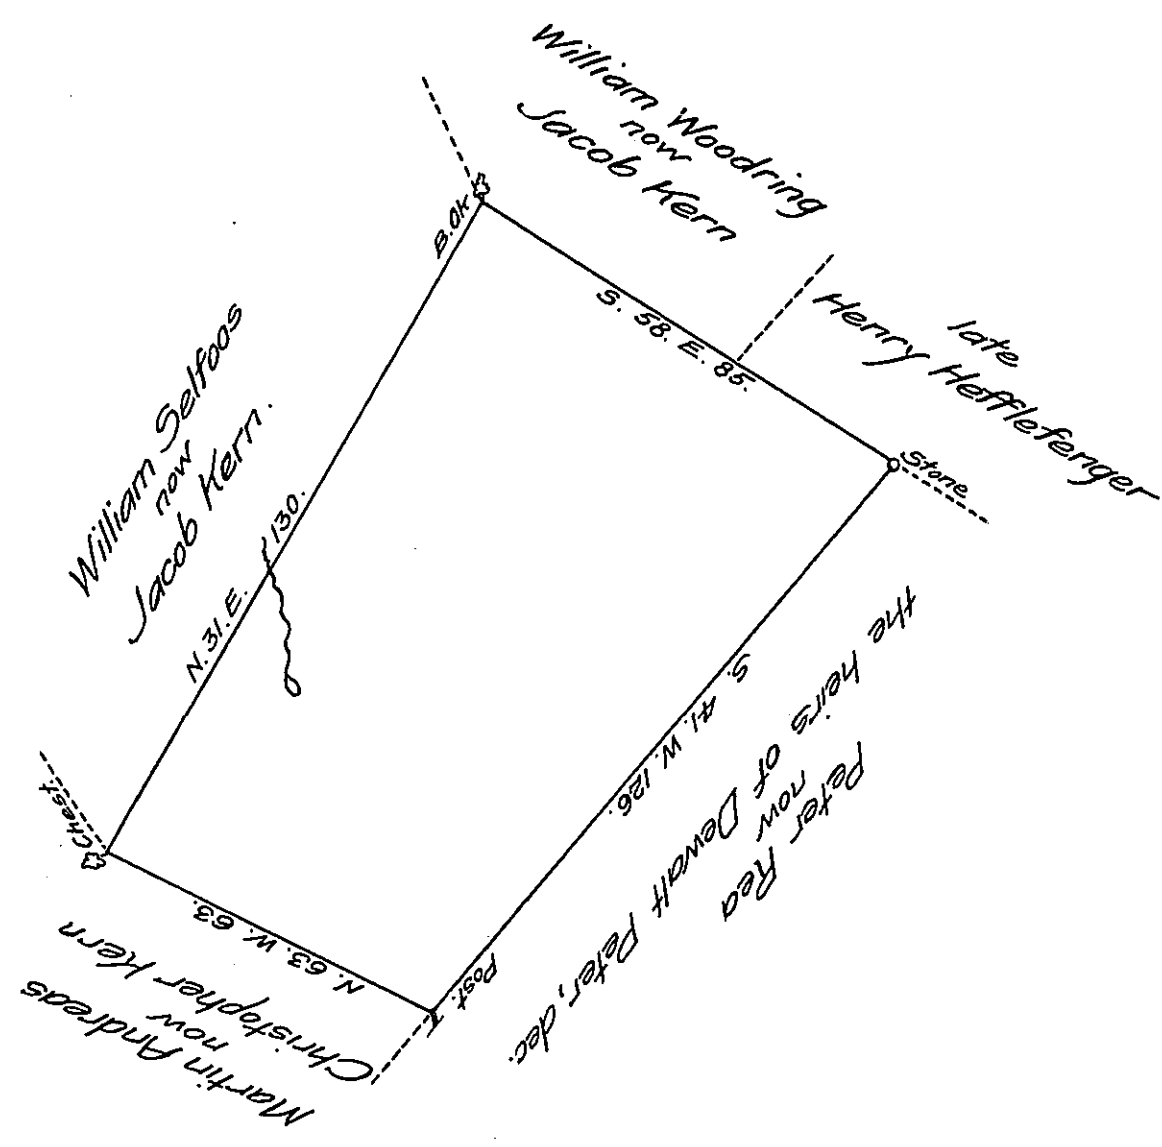 William Woodring
now
Jacob Kern
late
Henry Hefflefenger
B.Ok
S. 58. E. 85.
Stone
William Selfoos
now
Jacob Kern.
N. 31. E. 130.
S. 41. W. 126.
Peter Rea
now
the heirs of Dewalt Peter, dec.
Chest.
N. 63. W. 63.
Post.
Martin Andreas
now
Christopher Kern